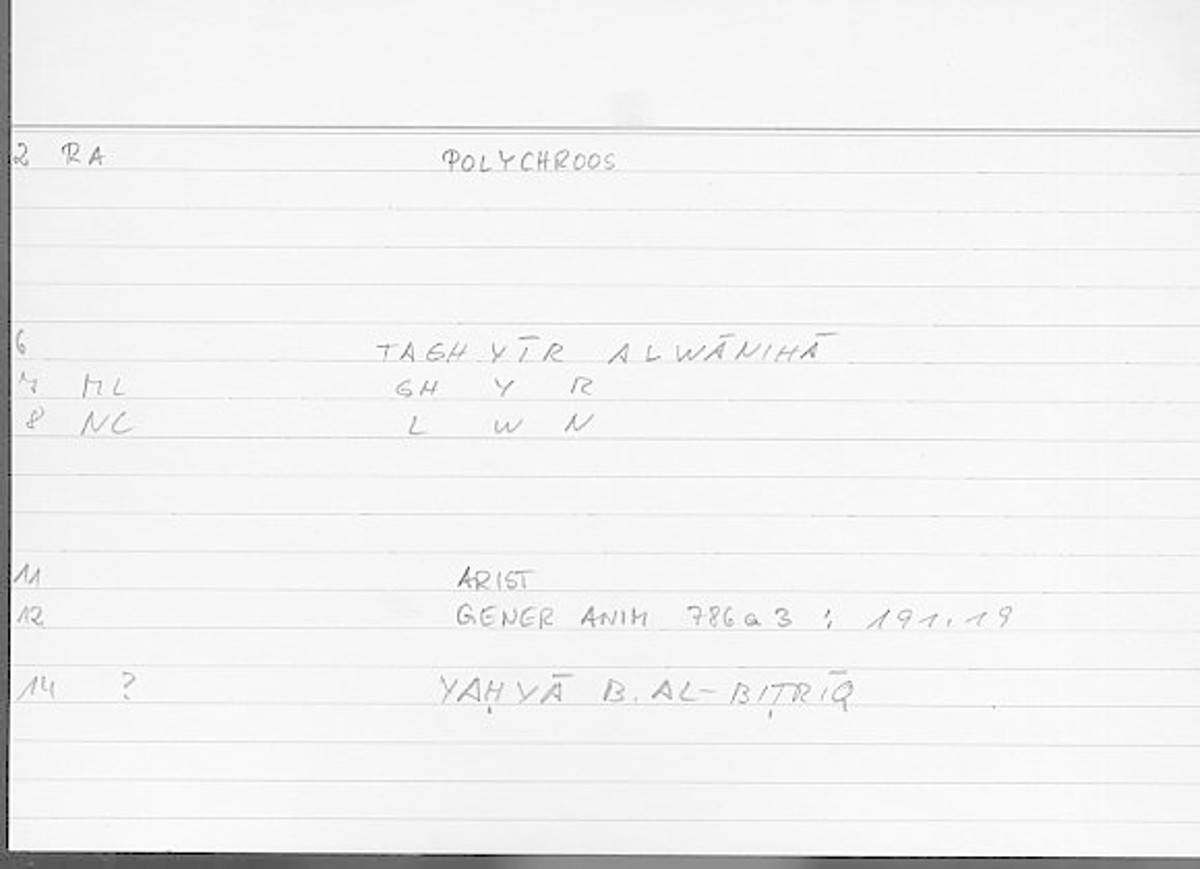 2 RA POLYCHROOS
6 TAGHYĪR ALWĀNIHĀ
7 ML GH Y R
8 NC L W N
11 ARIST
12 GENER ANIM 786a3 : 191.19
14 ? YAḤYĀ B. AL-BIṬRĪQ